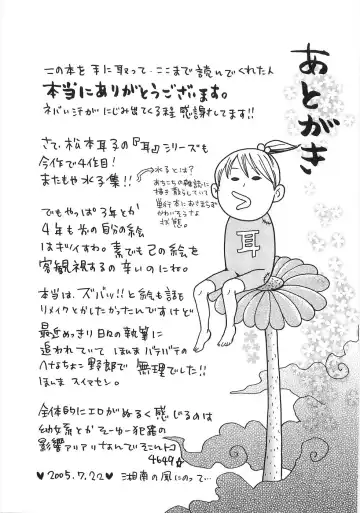 あとがき
この本を手に取って…ここまで読いでくれた人
本当にありがとうございます。
ネバい汗がにじみ出てくる程 感謝してます!!
さて、松本耳子の『耳』シリーズも
今作で4作目!
またもや水子集!!
水子とは?
あちこちの雑誌に
描き散らしていて
単行本におさまらず
かわいそうな
状態。
でもやっぱ3年とか
4年も前の自分の絵
はギツイすわ。素でも己の絵を
客観視するの辛いのにね。
本当は、ズバッ!!と絵も話も
リメイクとかしたかったんですけど
最近めっきり日々の執筆に
追われていて ほんまバテバテの
へなちょこ野郎で 無理でした!!
ほんま スイマセン。
全体的にエロがぬるく感じるのは
幼女系とかそーゆー犯罪の
影響アリアリなんで そこんトコ
4649☆
♥2005.7.22♥ 湘南の風にのって…
耳